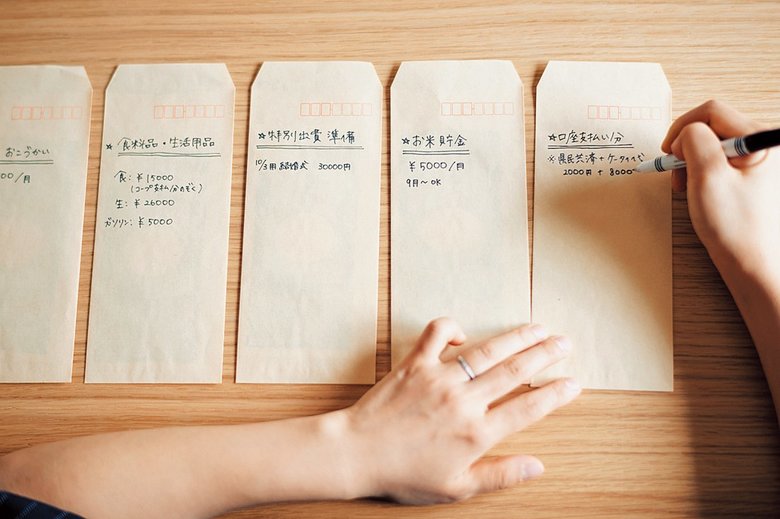 おこづかい
00/月
☆食料品・生活用品
食: ¥15000
(コープ支払い分のぞく)
生: ¥26000
ガソリン: ¥5000
☆特別出費 準備
10/3用 結婚式 30000円
☆お米貯金
¥5000/月
9月〜OK
☆口座支払い分
※県民共済+ケータイ代
2000円 + 8000